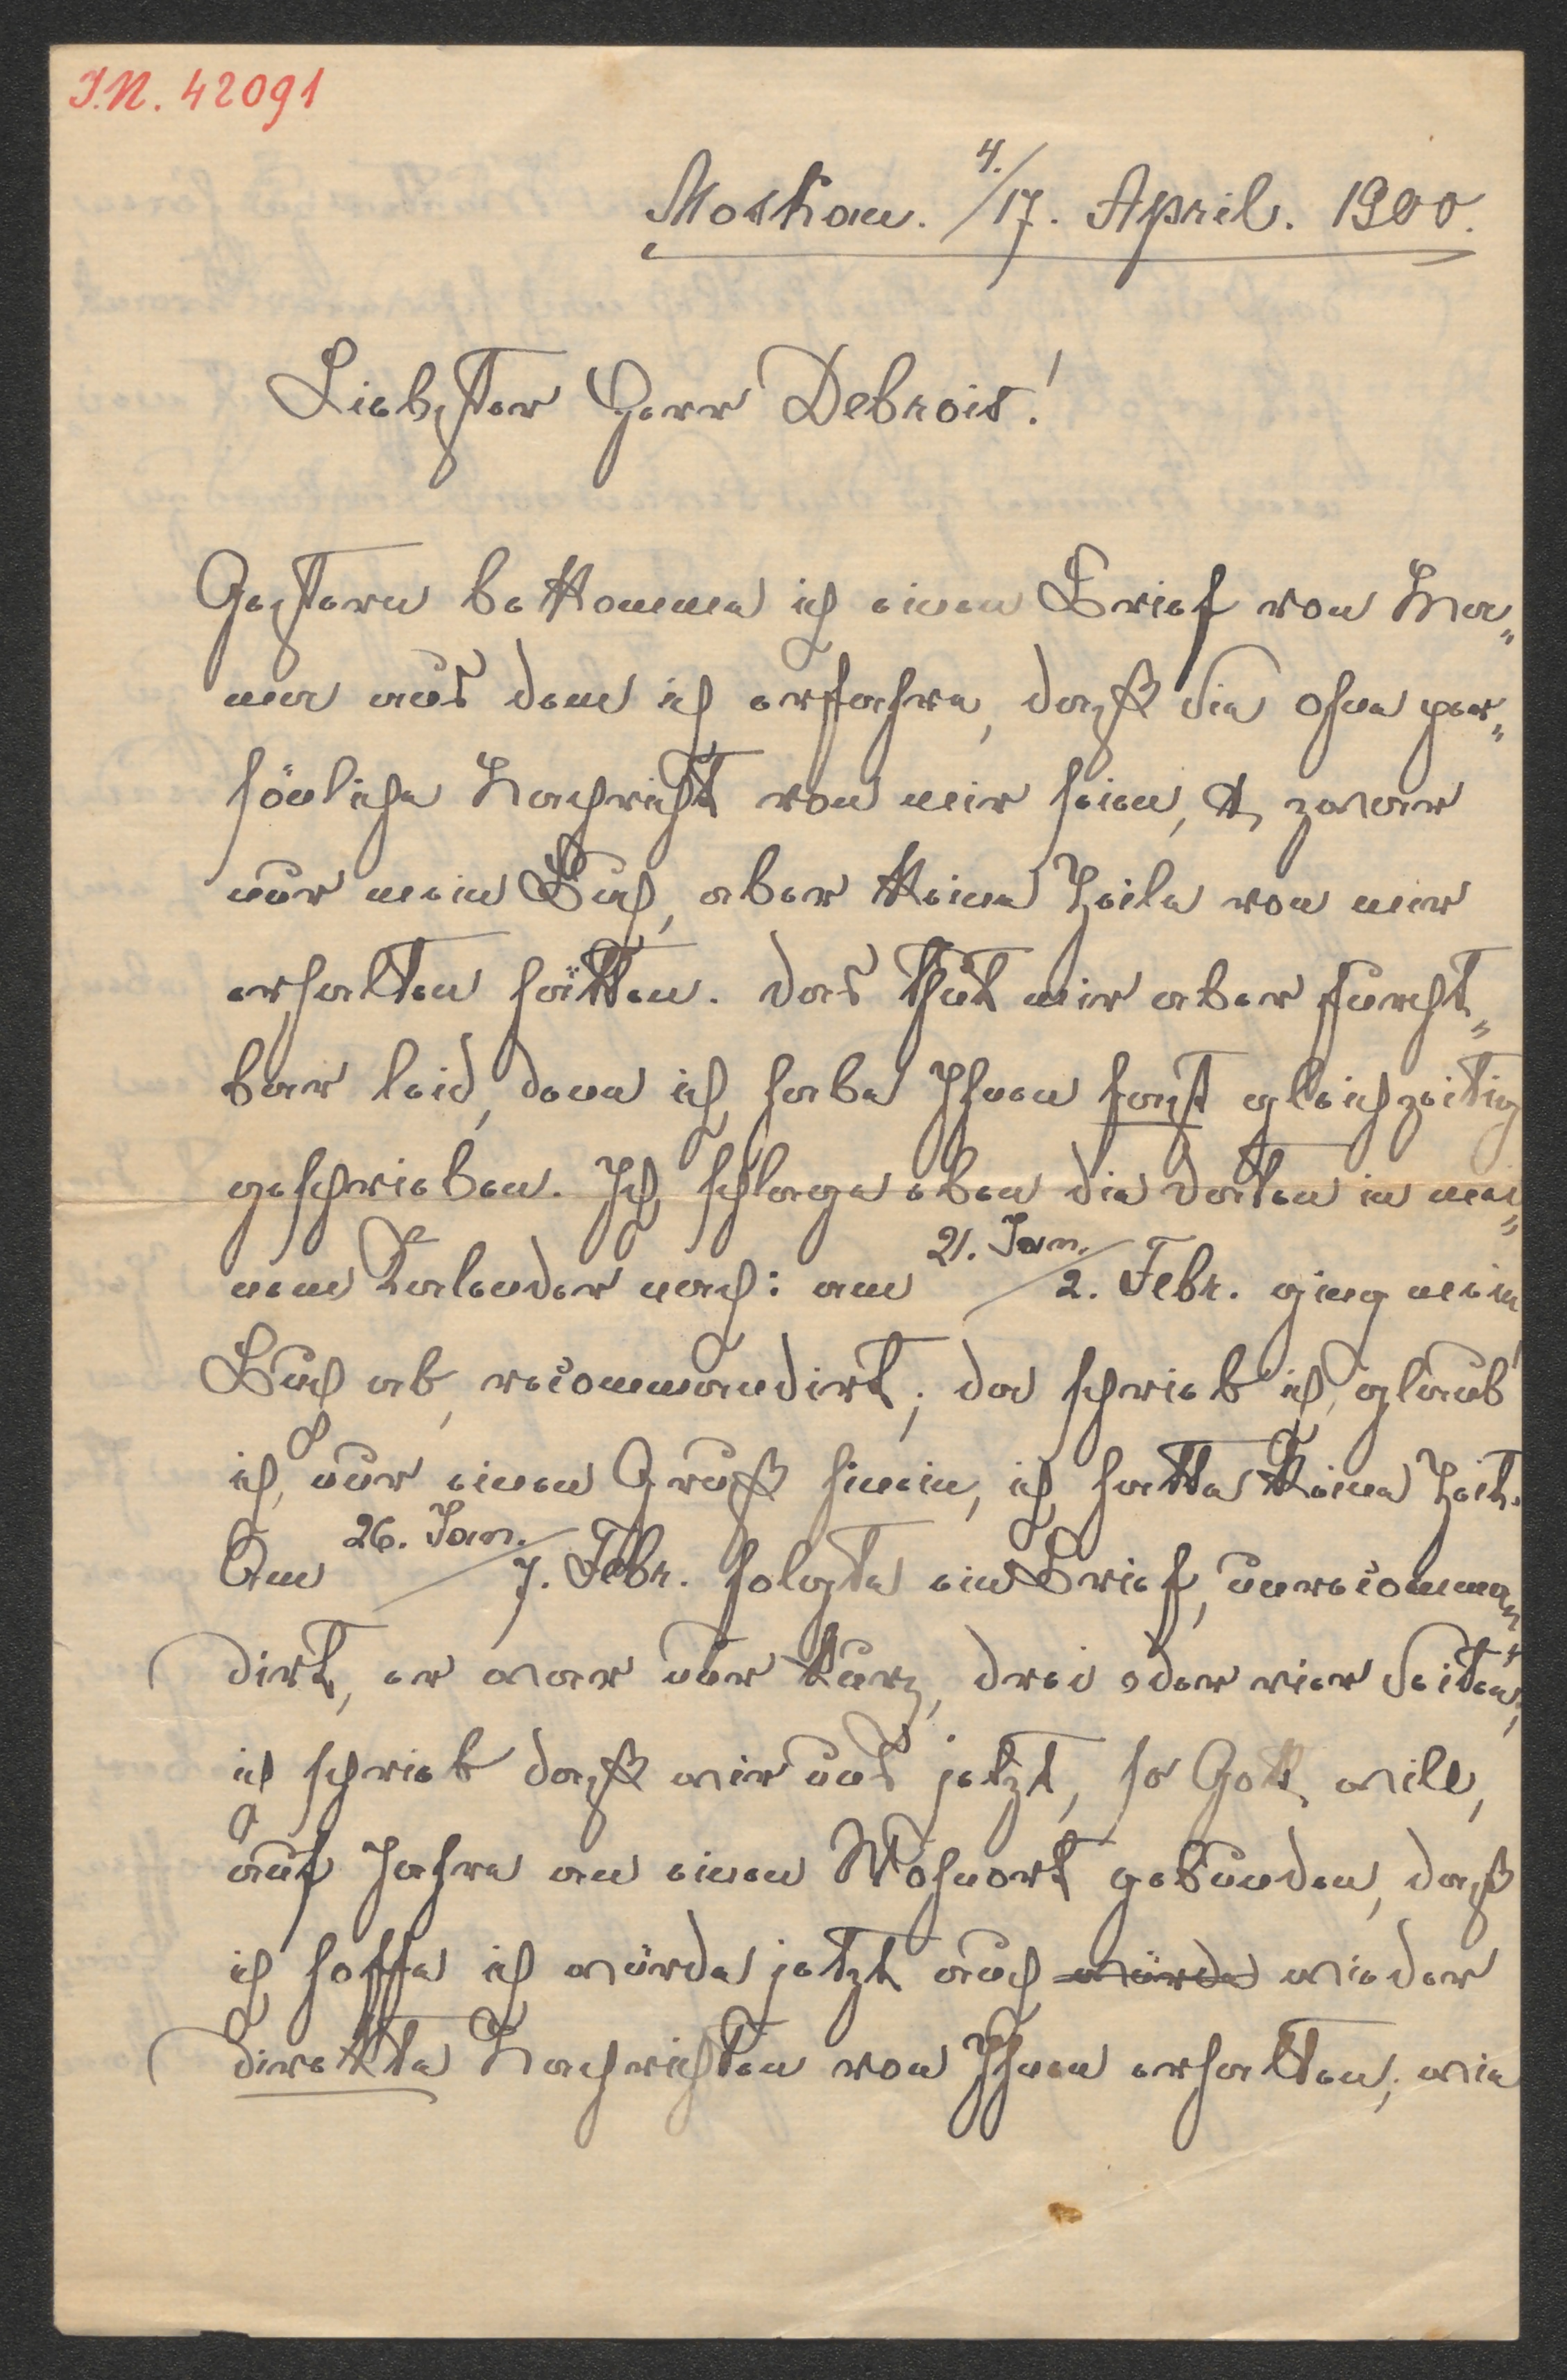 I.N. 42091
Moskau. 4./17. April. 1900.
Liebster Herr Debrois!
Gestern bekomme ich einen Brief von Ma„
ma aus dem ich erfahre, dasß Sie ohne per„
sönliche Nachricht von mir seien, & zwar
nur mein Buch, aber keine Zeile von mir
erhalten hätten. Das thut mir aber furcht„
bar leid, denn ich habe Ihnen fast gleichzeitig
geschrieben. Ich schlage eben die Daten in mei„
nem Kalender nach: am 21. Jan./2. Febr. ging mein
Buch ab, recommandirt; da schrieb ich, glaub'
ich, nur einen Gruß hinein, ich hatte keine Zeit.
Am 26. Jan./7. Febr. folgte ein Brief, unrecomman„
dirt, er war nur kurz, drei oder vier Seiten,
ich schrieb dasß wir uns jetzt, so Gott will,
auf Jahre an einen Wohnort gebunden, dasß
ich hoffe ich würde jetzt auch würde wieder
direkte Nachrichten von Ihnen erhalten; wie